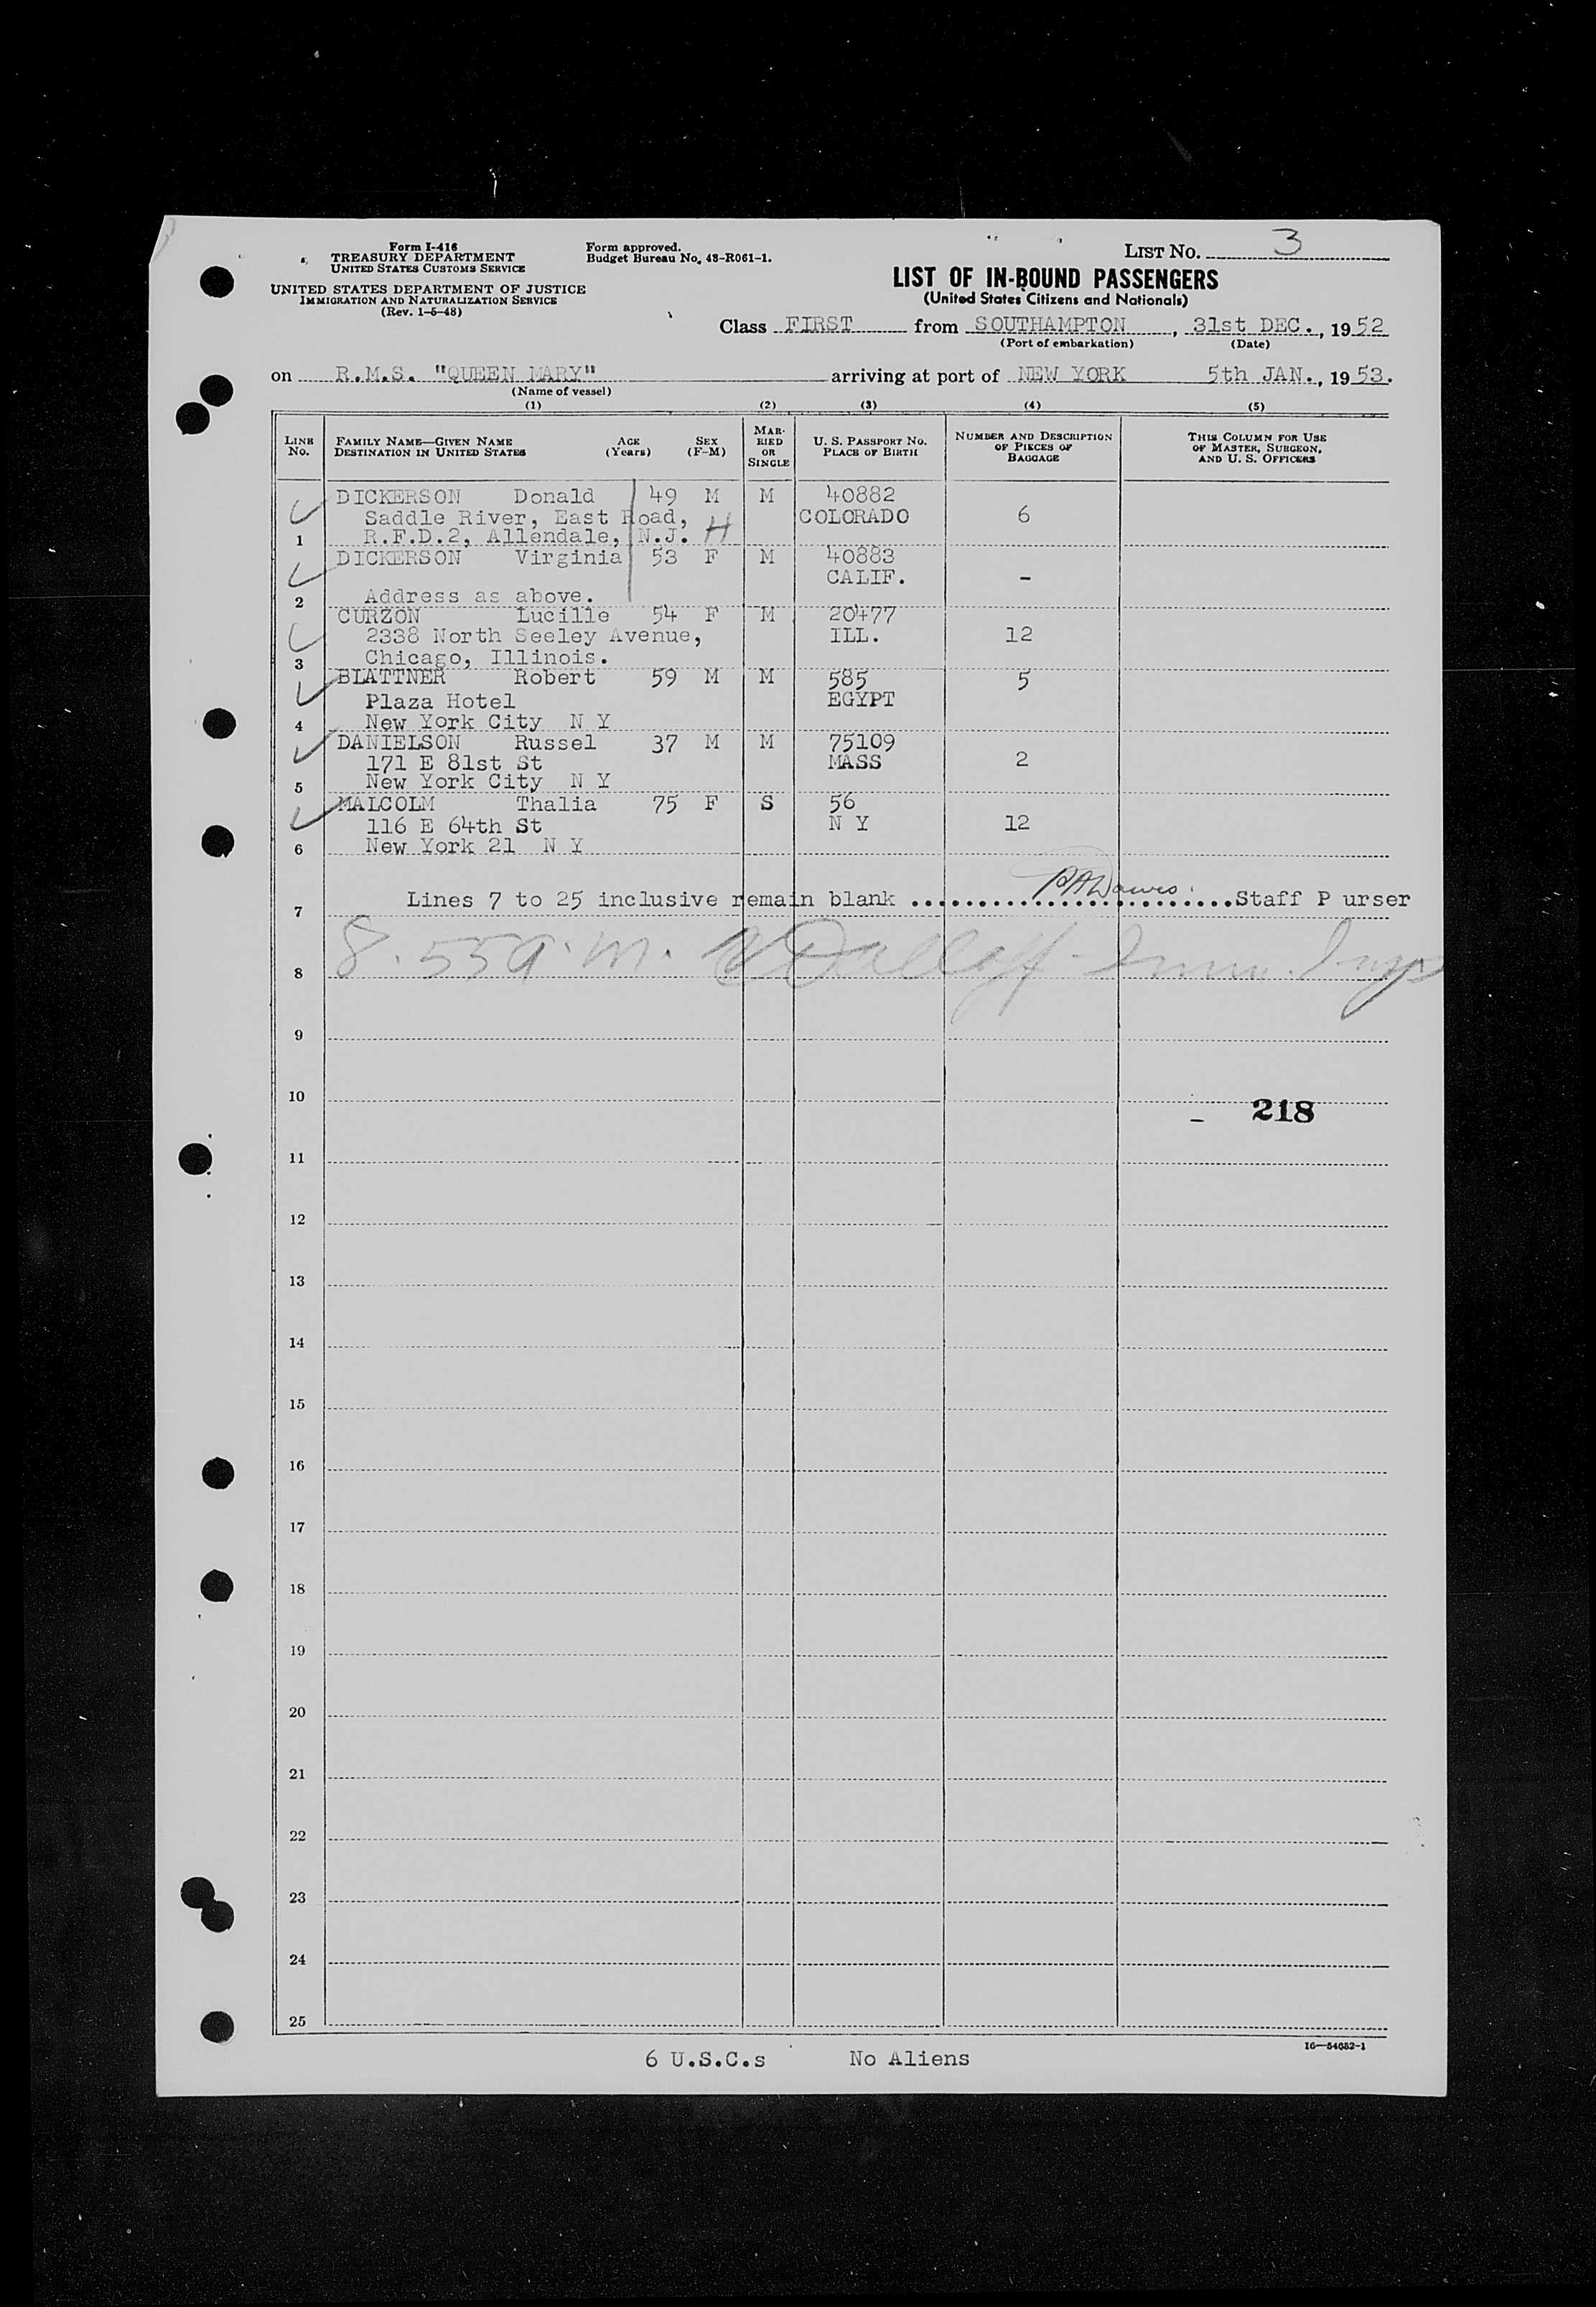 Form I-416
TREASURY DEPARTMENT
UNITED STATES CUSTOMS SERVICE
UNITED STATES DEPARTMENT OF JUSTICE
IMMIGRATION AND NATURALIZATION SERVICE
(Rev. 1-5-48)
Form approved.
Budget Bureau No. 43-R061-1.
LIST No. 3
LIST OF IN-BOUND PASSENGERS
(United States Citizens and Nationals)
Class FIRST from SOUTHAMPTON, 31st DEC., 1952
(Port of embarkation) (Date)
on R.M.S. "QUEEN MARY" arriving at port of NEW YORK 5th JAN., 1953.
(Name of vessel)
(1) (2) (3) (4) (5)
LINE No. FAMILY NAME—GIVEN NAME DESTINATION IN UNITED STATES AGE (Years) SEX (F-M) MARRIED OR SINGLE U. S. PASSPORT NO. PLACE OF BIRTH NUMBER AND DESCRIPTION OF PIECES OF BAGGAGE THIS COLUMN FOR USE OF MASTER, SURGEON, AND U. S. OFFICERS
DICKERSON Donald 49 M M 40882
Saddle River, East Road, COLORADO 6
1 R.F.D.2, Allendale, N.J. H
DICKERSON Virginia 53 F M 40883
CALIF. -
2 Address as above.
CURZON Lucille 54 F M 20477
2338 North Seeley Avenue, ILL. 12
3 Chicago, Illinois.
BLATTNER Robert 59 M M 585 5
Plaza Hotel EGYPT
4 New York City N Y
DANIELSON Russel 37 M M 75109
171 E 81st St MASS 2
5 New York City N Y
MALCOLM Thalia 75 F S 56
116 E 64th St N Y 12
6 New York 21 N Y
7 Lines 7 to 25 inclusive remain blank ........................Staff P urser
8 8.55 a.m. Imm. Insp
9
10
218
11
12
13
14
15
16
17
18
19
20
21
22
23
24
25
16—54652-1
6 U.S.C.s No Aliens